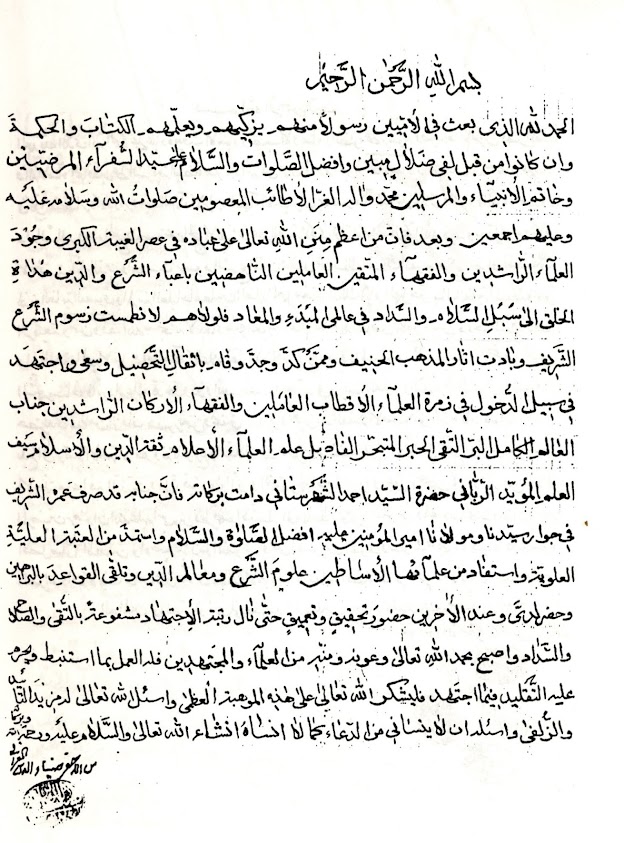 بسم الله الرَّحمٰن الرَّحيم
الحمد لله الذى بعث فى الاميين رسولا منهم يزكّيهم ويعلّمهم الكتاب والحكمة
وان كانوا من قبل لفى ضلال مبين وافضل الصّلوات والسّلام على محمّد السّفرآء المرضيّين
وخاتم الأنبيآء والمرسلين محمّد واله الغرّ الاطائب المعصومين صلوات الله وسلامه عليه
وعليهم اجمعين وبعد فانّ من اعظم منن الله تعالى على عباده فى عصر الغيبة الكبرى وجود
العلمآء الرّاشدين والفقهآء المتّقين العاملين النّاهضين باعبآء الشّرع والدّين هداة
الخلق الى سُبُل السّلام والسّداد فى عالمى المبدء والمعاد فلولاهم لانطمست رسوم الشّرع
الشّريف وبادت اثار المذهب الحنيف وممّن كدّ وجدّ وقام باثقال التّحصيل وسعى واجتهد
فى سبيل الدّخول فى زمرة العلمآء الأقطاب العاملين والفقهآء الأركان الرّاشدين جناب
العالم الكامل البرّ التّقى الحبر المتبحّر الفاضل علم العلمآء الأعلام ثقة الدّين والأسلام سيف
العلم المؤيّد الرّبّانى حضرة السّيّد احمد الشّهرستانى دامت بركاته فانّ جنابه قد صرف عمره الشّريف
فى جوار سيّدنا ومولانا امير المؤمنين عليه افضل الصّلوة والسّلام واستمدّ من العتبة العليّة
العلويّة واستفاد من علمآئها الأساطين علوم الشّرع ومعالم الدّين وتلقّى القواعد بالبراهين
وحضر لدىّ وعند الأخرين حضور تحقيق وتعميق حتّى نال رتبة الاجتهاد مشفوعة بالتّقى والصّلاح
والسّداد واصبح بحمد الله تعالى وعونه ومنّه من العلمآء والمجتهدين فله العمل بما استنبط ويحرم
عليه التّقليد فيما اجتهد فليشكر الله تعالى على هذه الموهبة العظمى واسئل الله تعالى له مزيد التّأييد
والزّلفى واسئله ان لا ينسانى من الدّعاء كما لا انساه انشاء الله تعالى والسّلام عليه ورحمة الله وبركاته
من الاحقر ضياء الدين العراقى